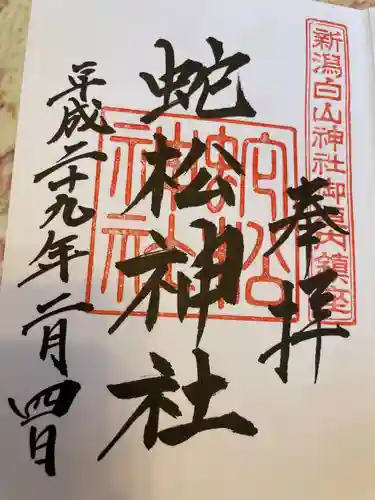 新潟白山神社御境内鎮座
奉拝
蛇松神社
蛇松神社
平成二十九年二月四日